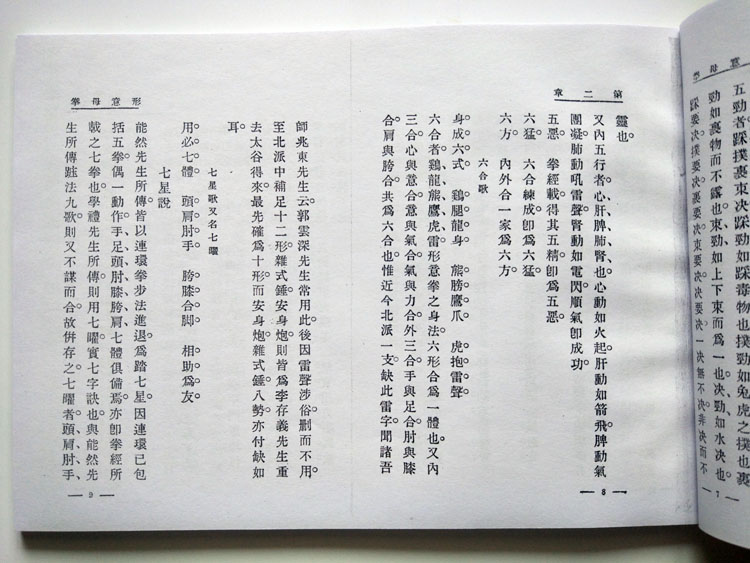 拳母意
五勁者踩撲裹束決踩勁如踩毒物也撲勁如兔虎之撲也裹
勁如裹物而不露也束勁如上下束而爲一也決勁如水決也。
踩要決撲要決裹要決束要決決要決一決無不決非決而不
7
章二第
靈也。
又內五行者心肝脾肺腎也心動如火起肝動如箭飛脾動氣
團凝肺動吼雷聲腎動如電閃順氣卽成功。
五惡。 拳經載得其五精卽爲五惡
六猛。 六合練成卽爲六猛
六方 內外合一家爲六方。
六合歌
身成六式 鷄腿龍身 熊膀鷹爪 虎抱雷聲。
六合者鷄、龍、熊、鷹、虎、雷形意拳之身法六形合爲一體也又內
三合心與意合意與氣合氣與力合外三合手與足合肘與膝
合肩與胯合共爲六合也惟近今北派一支缺此雷字聞諸吾
8
拳母意形
師兆東先生云郭雲深先生常用此後因雷聲涉俗刪而不用。
至北派中補足十二形雜式錘安身炮則皆爲李存義先生重
去太谷得來最先確爲十形而安身炮雜式錘八勢亦付缺如
耳。
七星歌又名七曜
用必七體。 頭肩肘手。 胯膝合脚。 相助爲友。
七星說
能然先生所傳皆以連環拳步法進退爲踏七星因連環已包
括五拳偶一動作手足頭肘膝胯肩七體俱備焉亦卽拳經所
戟之七拳也學禮先生所傳則用七曜實七字訣也與能然先
生所傳跴法九歌則又不謀而合故倂存之七曜者頭肩肘手、
9